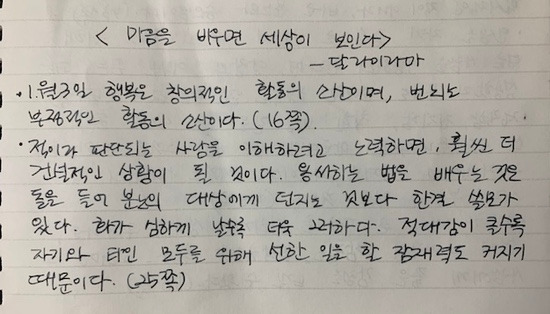 < 마음을 비우면 세상이 보인다>
- 달라이라마
· 1월 3일 행복은 창의적인 활동의 소산이며, 번뇌는
부정적인 활동의 소산이다. (16쪽)
· 적이라 판단되는 사람을 이해하려고 노력하면, 훨씬 더
건설적인 상황이 될 것이다. 용서하는 법을 배우는 것은
돌을 들어 분노의 대상에게 던지는 것보다 한결 쓸모가
있다. 화가 심하게 날수록 더욱 그러하다. 적대감이 클수록
자기와 타인 모두를 위해 선한 일을 할 잠재력도 커지기
때문이다. (25쪽)